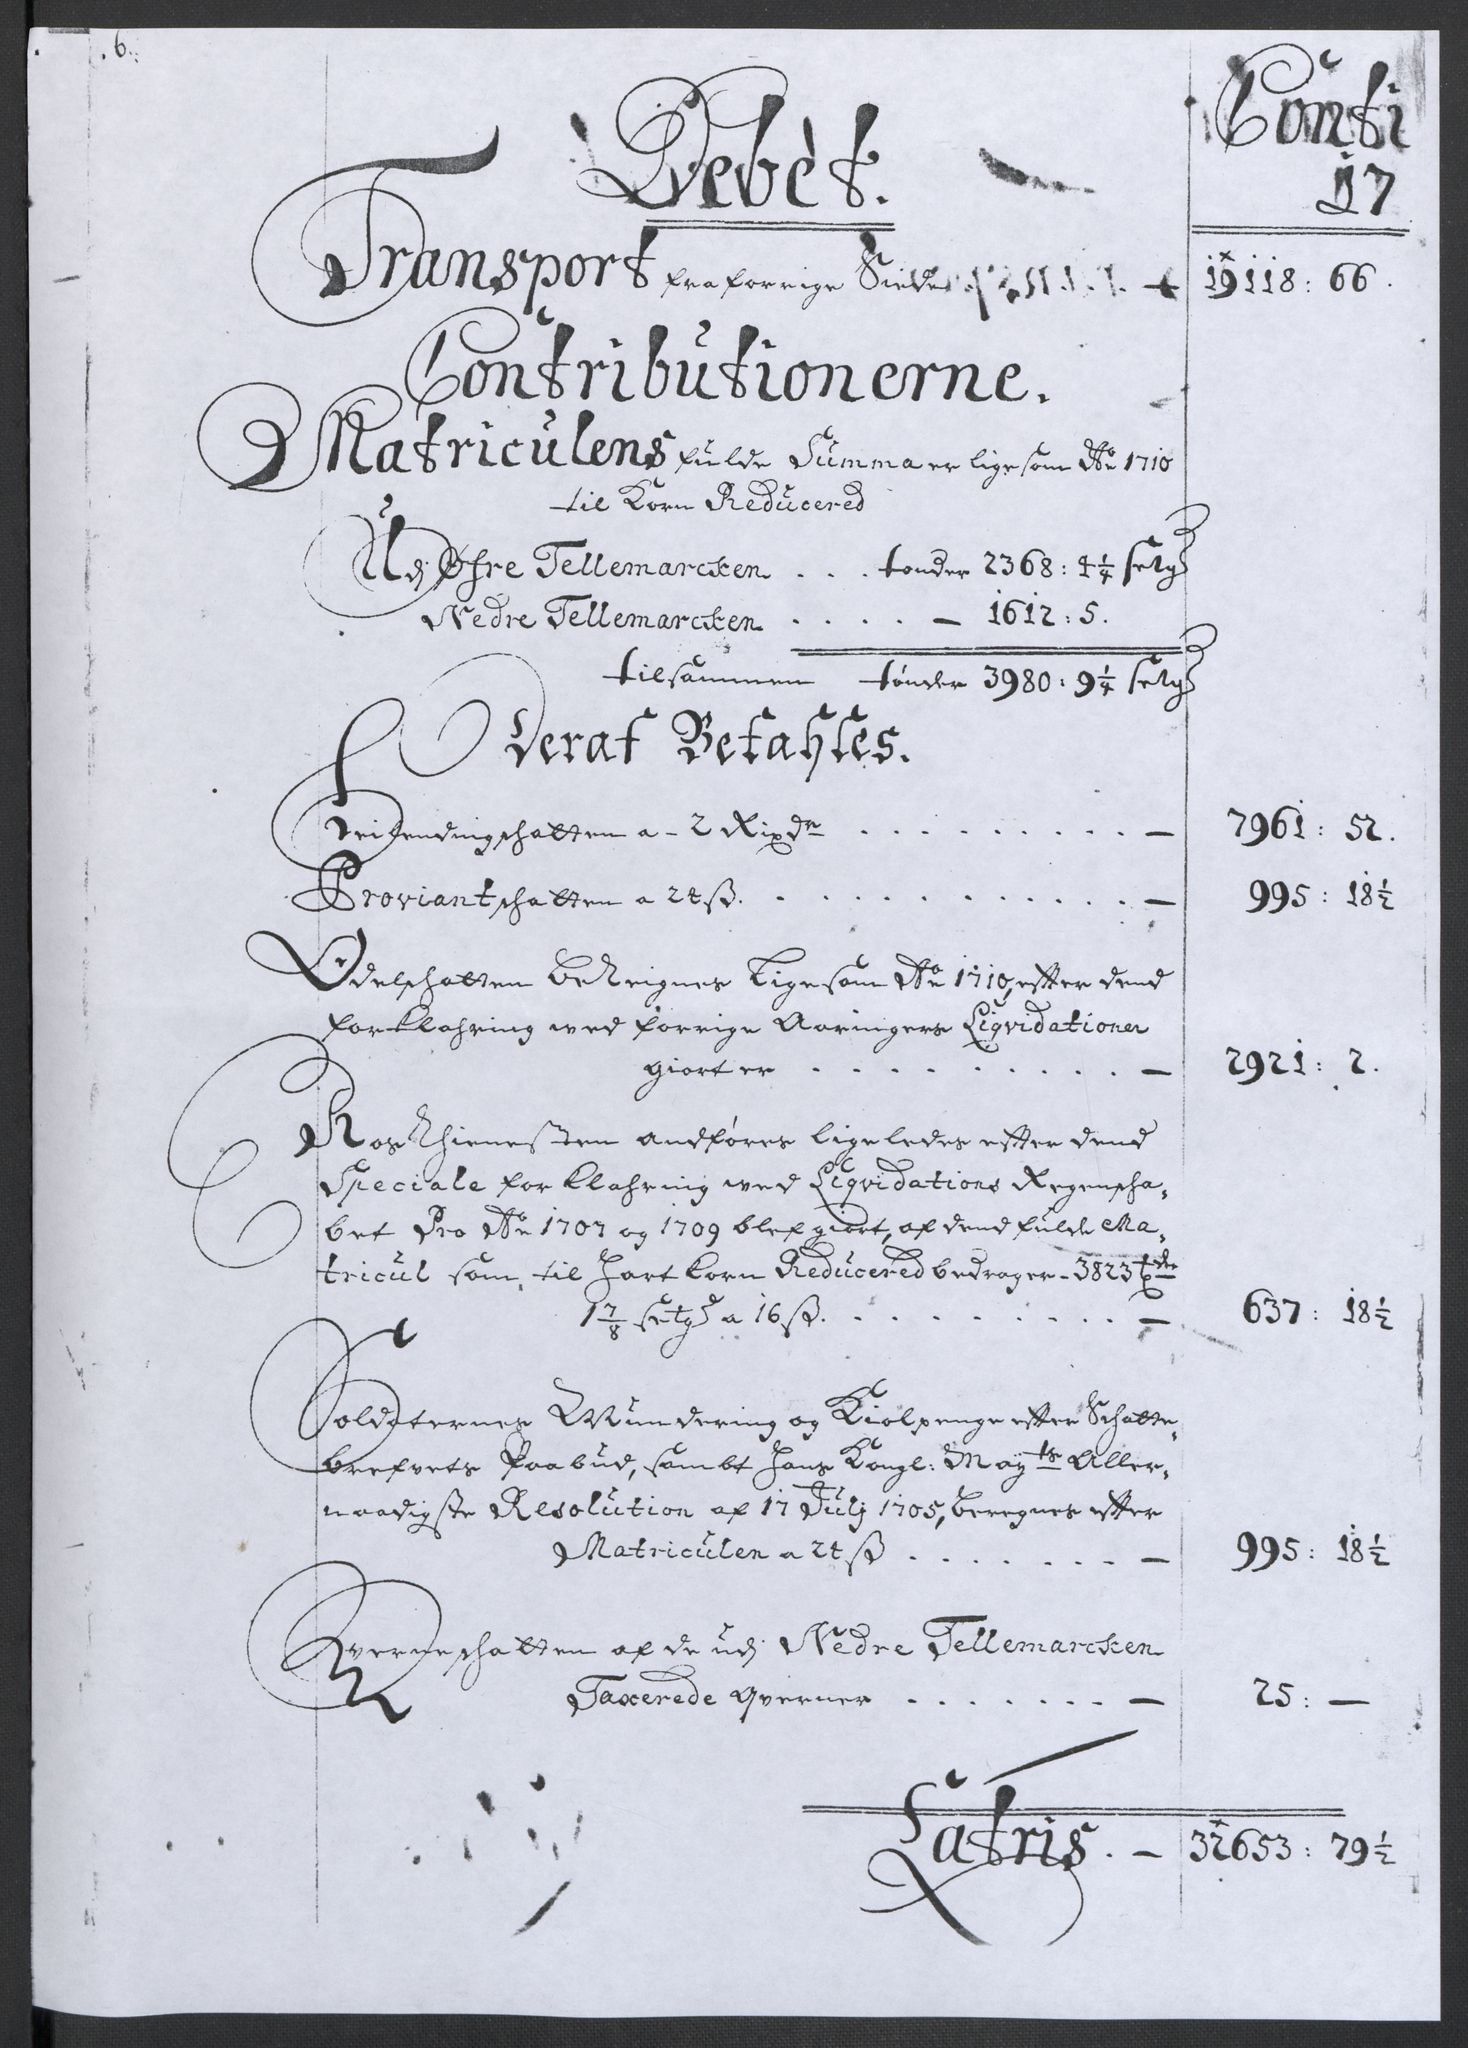 6.
Debèt.
Conti
17
Transport fra forrige Siide 19118: 66.
Contributionerne.
Matriculens fulde Summa er lige som Ao 1710
til Korn Reducered
Udj Øfre Tellemarcken . . . tønder 2368: 4 1/4 setg
Nedre Tellemarcken . . . . . — 1612: 5.
tilsammen tønder 3980: 9 1/4 setg
Deraf Betahles.
Leilendingschatten a - 2 Rixdr . . . . . . . . . — 7961: 52.
Proviantschatten a 24 ß. . . . . . . . . . . . — 995: 18 1/2
Odelschatten bereignes lige som Ao 1710, efter dend
forklahring wed forrige Aaringers Liqvidationer
giort er . . . . . . . . . — 2921: 2.
Rosthienesten andføres ligeledes efter dend
Speciale forklahring wed Liqvidations Regenscha-
bet Pro Ao 1707 og 1709 blef giort, af dend fulde Ma-
tricul som, til Hart Korn Reducered bedrager - 3823 tdr
1 7/8 setg a 16 ß. . . . . . . . . — 637: 18 1/2
Soldaternes Mundering og Kiolpenge efter Schatte-
brefvets Paabud, sambt Hans Kongl: Mayts Aller-
naadigste Resolution af 17 Julj 1705, beregnes efter
Matriculen a 24 ß . . . . . . . — 995: 18 1/2
Qverneschatten af de udj Nedre Tellemarcken
Taxerede qverner . . . . . . . — 25: —
Latris. — 32653: 79 1/2